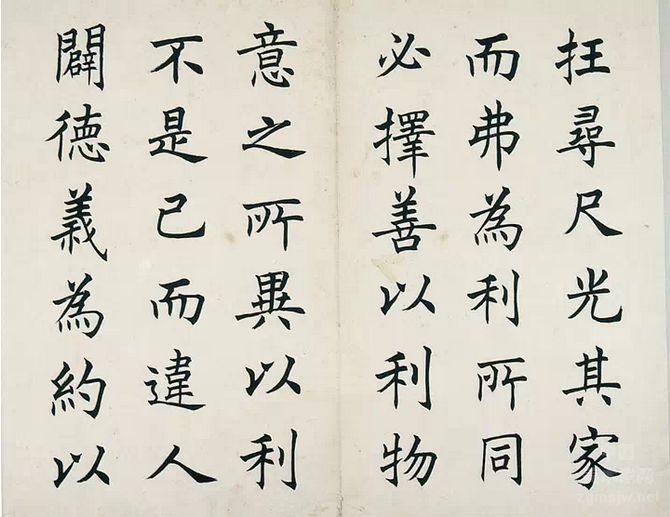 抂尋尺光其家
而弗為利所同
必擇善以利物
意之所異以利
不是已而違人
闢德義為約以
zgmsjw.net